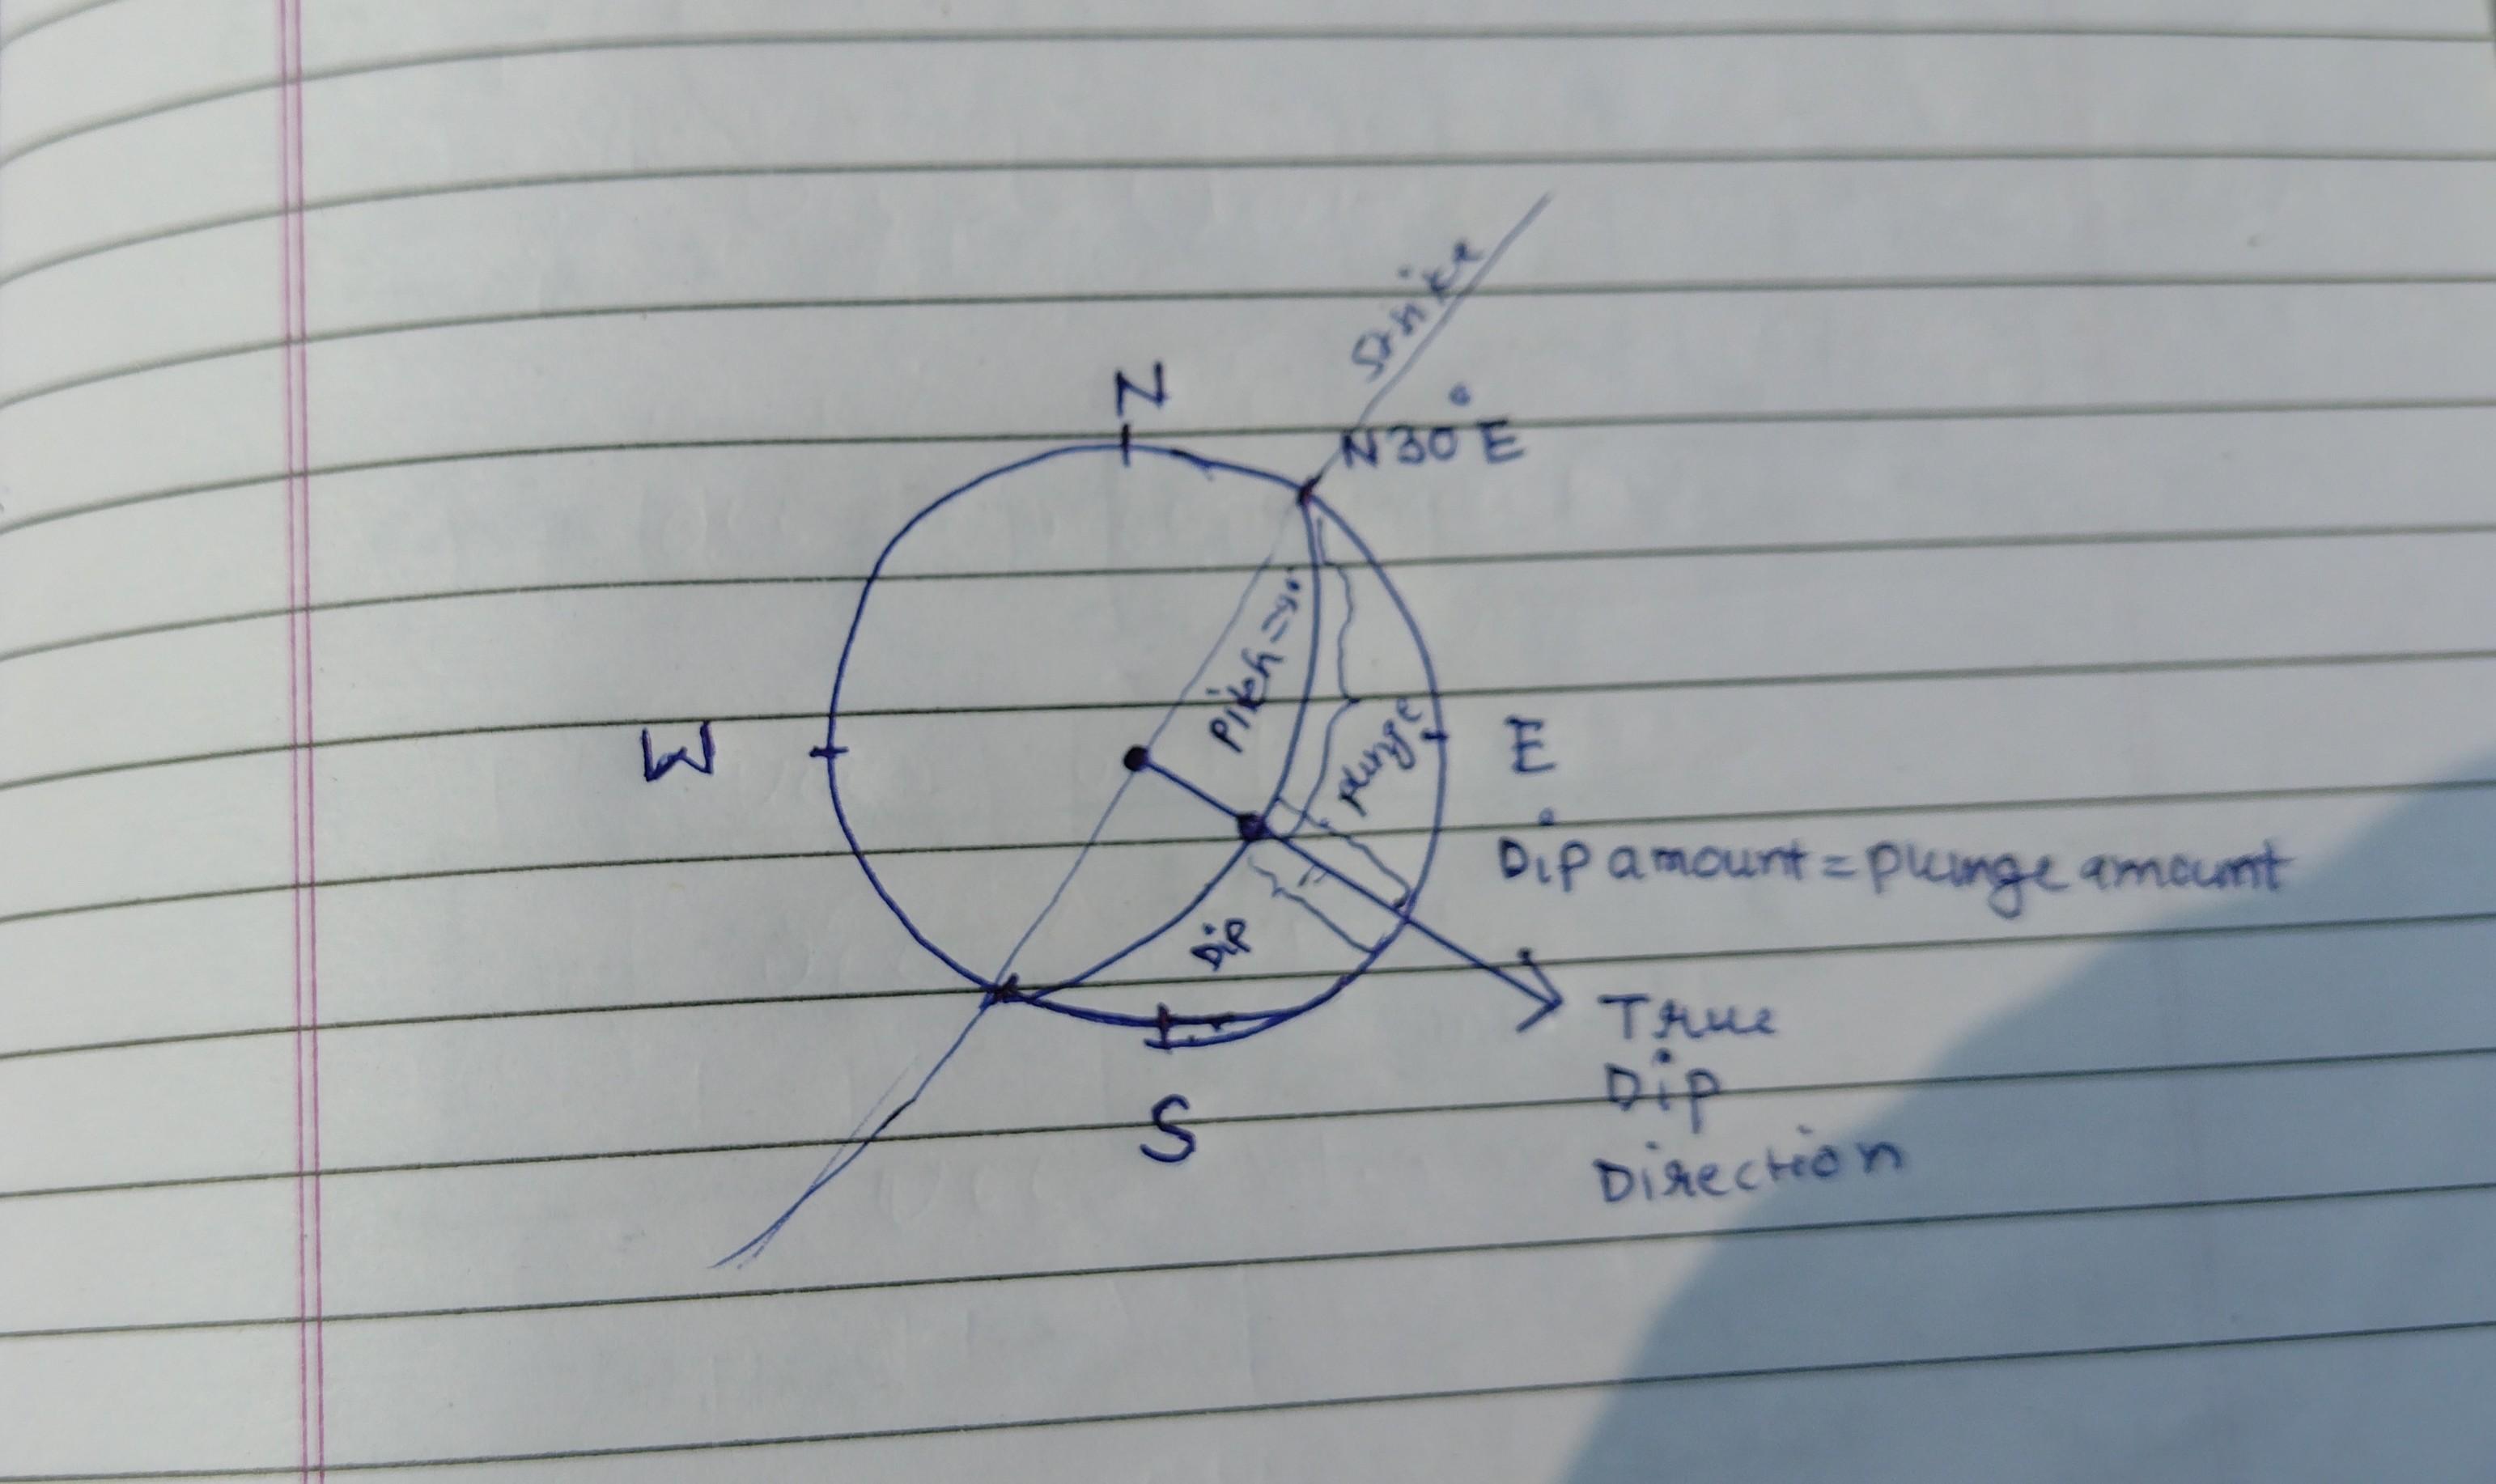 Strike
N
N30°E
Pitch = 90
Plunge
W
E
Dip amount = plunge amount
Dip
True
Dip
Direction
S